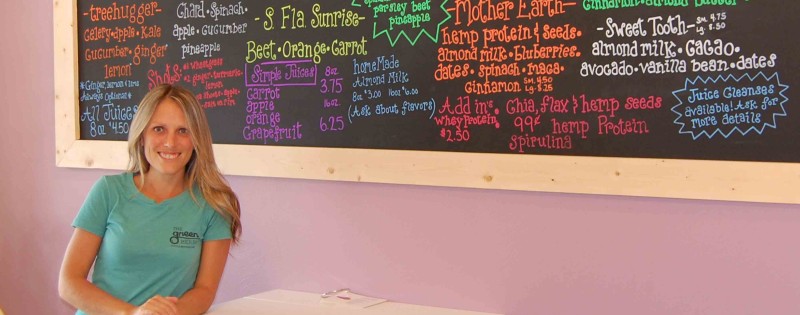 -treehugger-
celery·apple·Kale
cucumber·ginger
lemon
*Ginger, lemon & lime
Always optional*
All Juice
8oz $4.50
Chard·Spinach·
apple·cucumber
pineapple
Shots
-S. Fla Sunrise-
Beet·Orange·Carrot
Simple Juices 8oz
Carrot 3.75
apple 16oz.
orange 6.25
Grapefruit
parsley beet
pineapple
homeMade
Almond Milk
8oz $3.00 16oz $6.00
(Ask about flavors)
Mother Earth-
hemp protein & seeds
almond milk·bluberries
dates·spinach·maca
Cinnamon Sm 4.50
Lg 8.25
Add in's
whey protein
$2.50
Chia, flax & hemp seeds
99¢ hemp Protein
spirulina
-Sweet Tooth- Sm 4.75
Lg. 8.50
almond milk·cacao·
avocado·vanilla bean·dates
Juice Cleanses
available! Ask for
more details
green